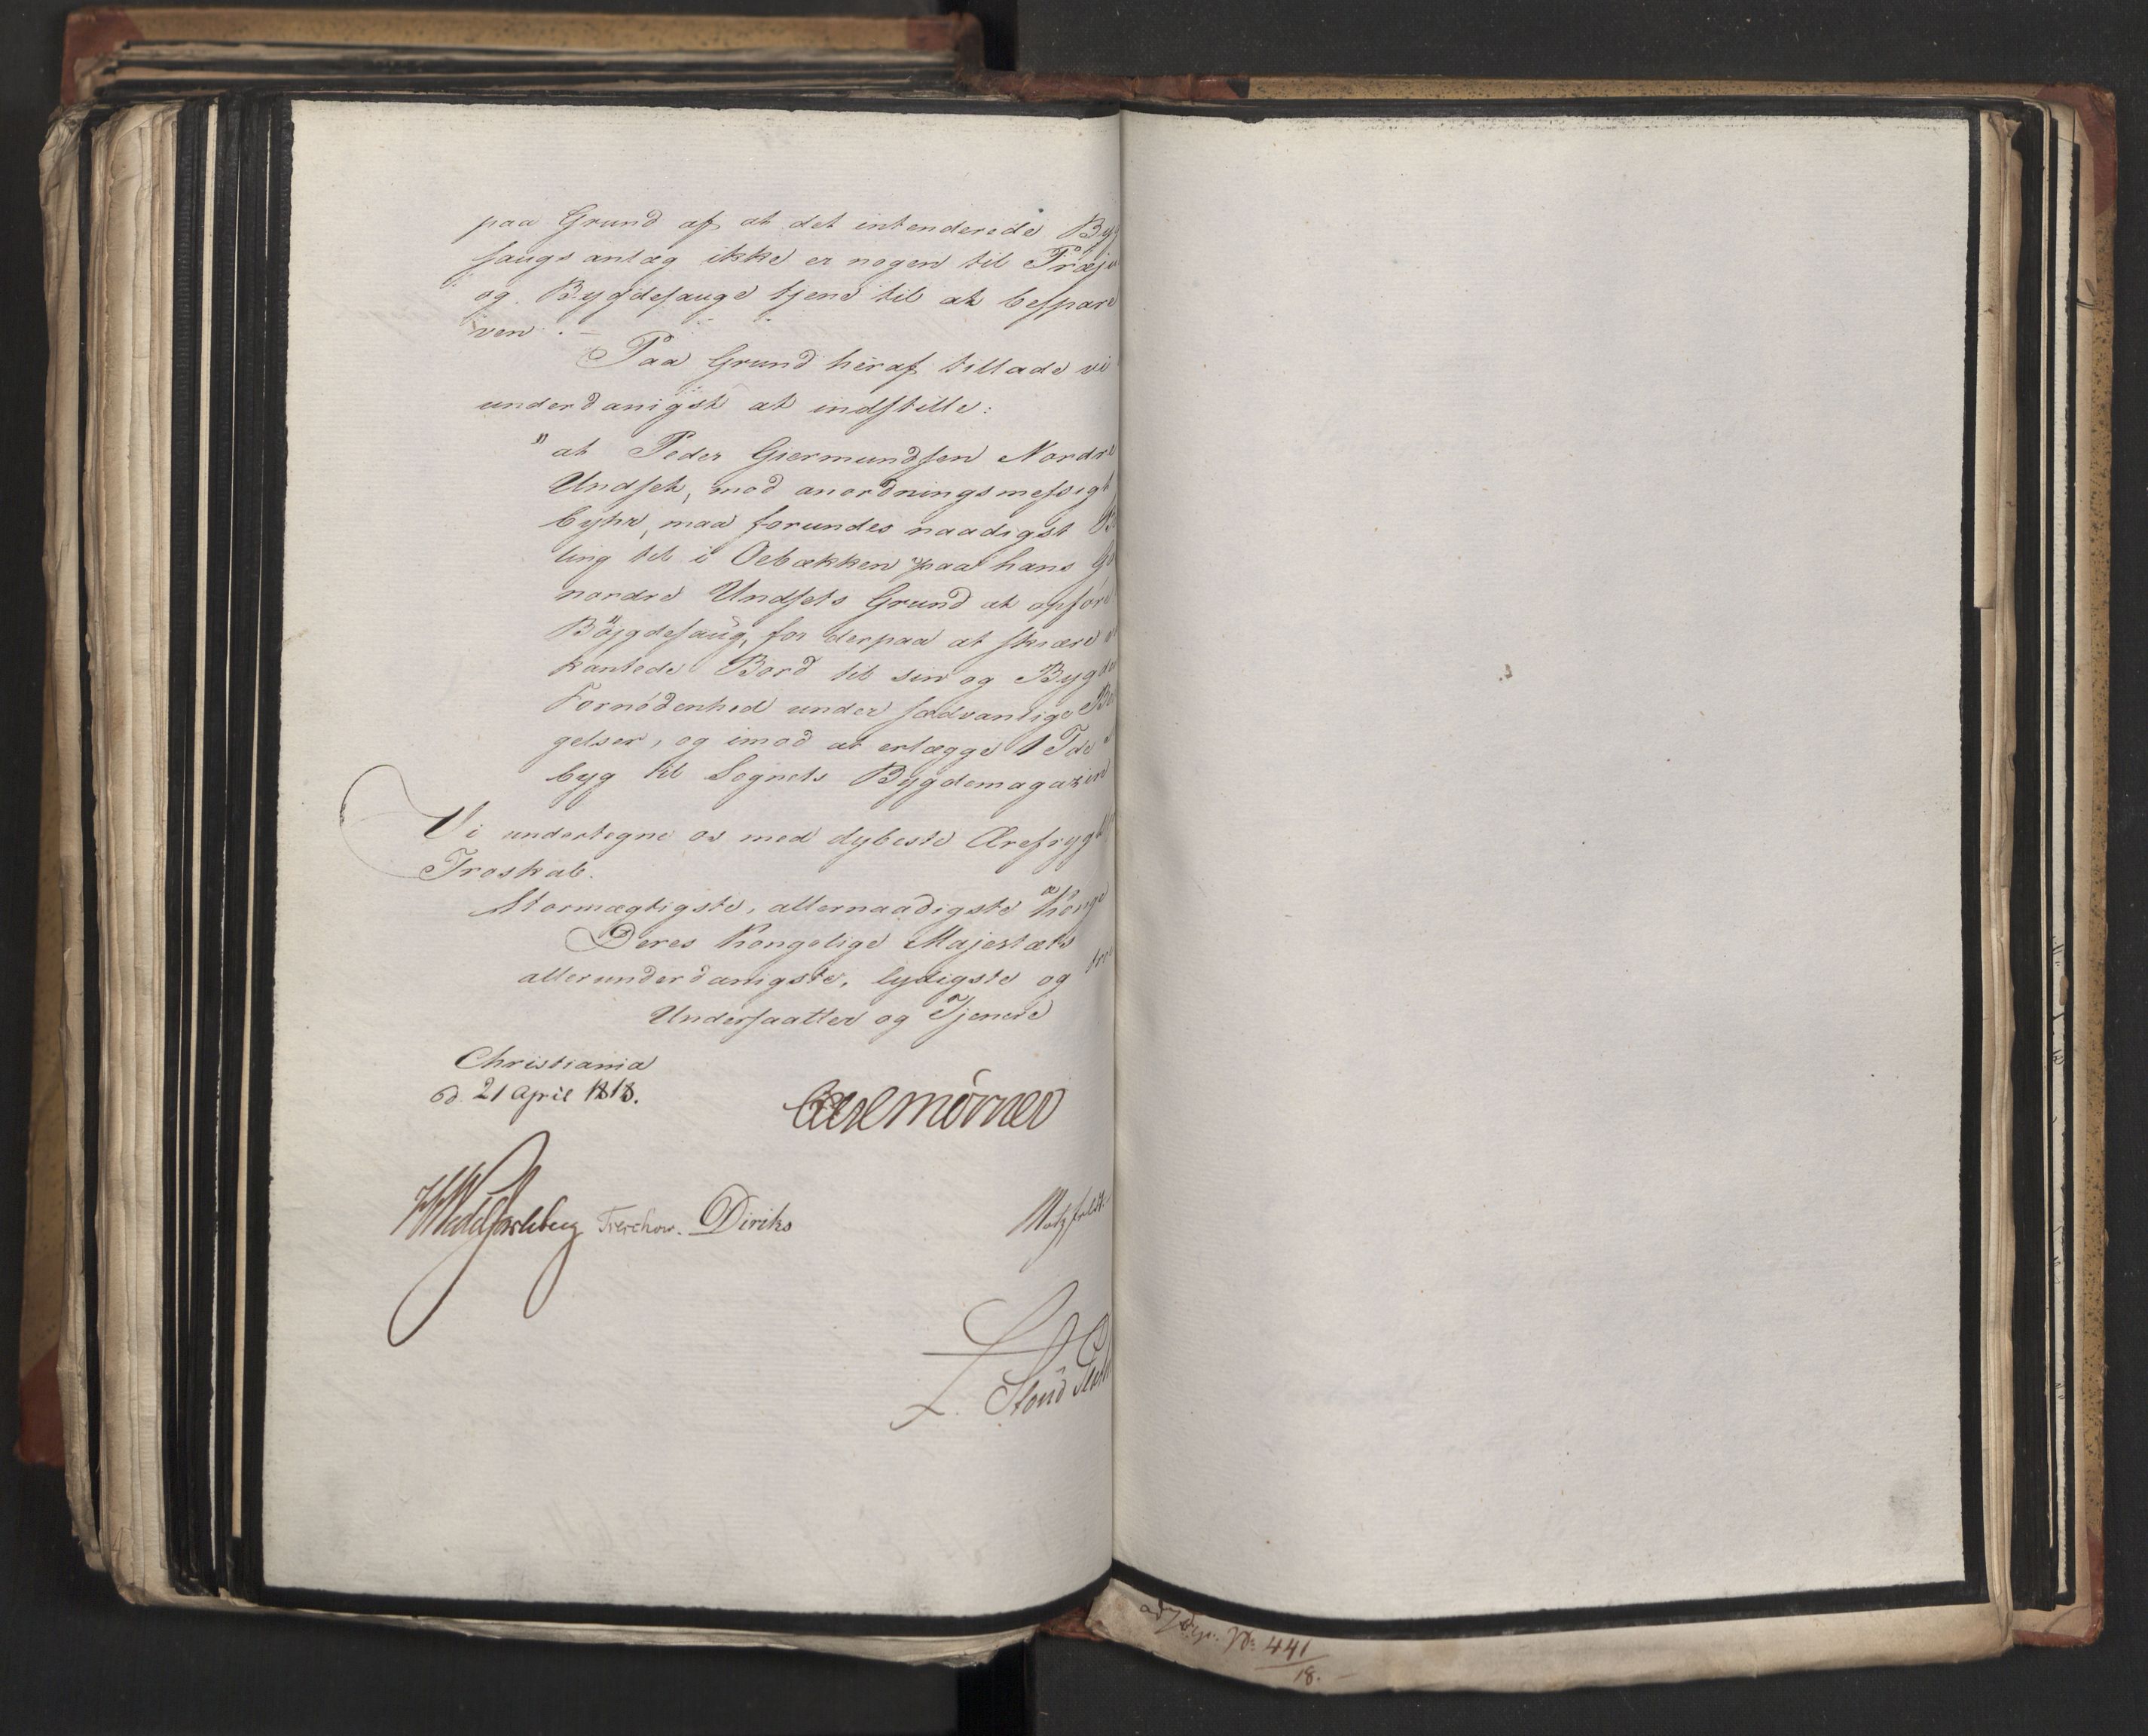 paa Grund af at det intenderede Byg
saugs anlæg ikke er nogen til Præju
og Bygdesauge tjene til at bespare
ven. –
Paa Grund heraf tillade vi
underdanigst at indstille:
"at Peder Giermundsen Nordre
Undset, mod anordningsmessigt
byhr, maa forundes naadigst Be
ling til i Oebækken paa hans G
nordre Undsets Grund at opføre
Bøjgdesaug, for derpaa at skiære
kantede Bord til sin og Bygde
Fornødenhed under sædvanlige Be
gelser, og imod at erlægge 1 Tde
byg til Sognets Bygdemagazin
Vi undertegne os med dybeste Ærefrygt
Troskab.
Stormægtigste, allernaadigste Konge
Deres Kongelige Majestæts
allerunderdanigste, lydigste og tro
Undersaatter og Tjenere
Christiania
d. 21 April 1818.
Carl Mörner
HWedelJarlsberg Treschow. Diriks Motzfeldt.
Stoud
No 441
18. –